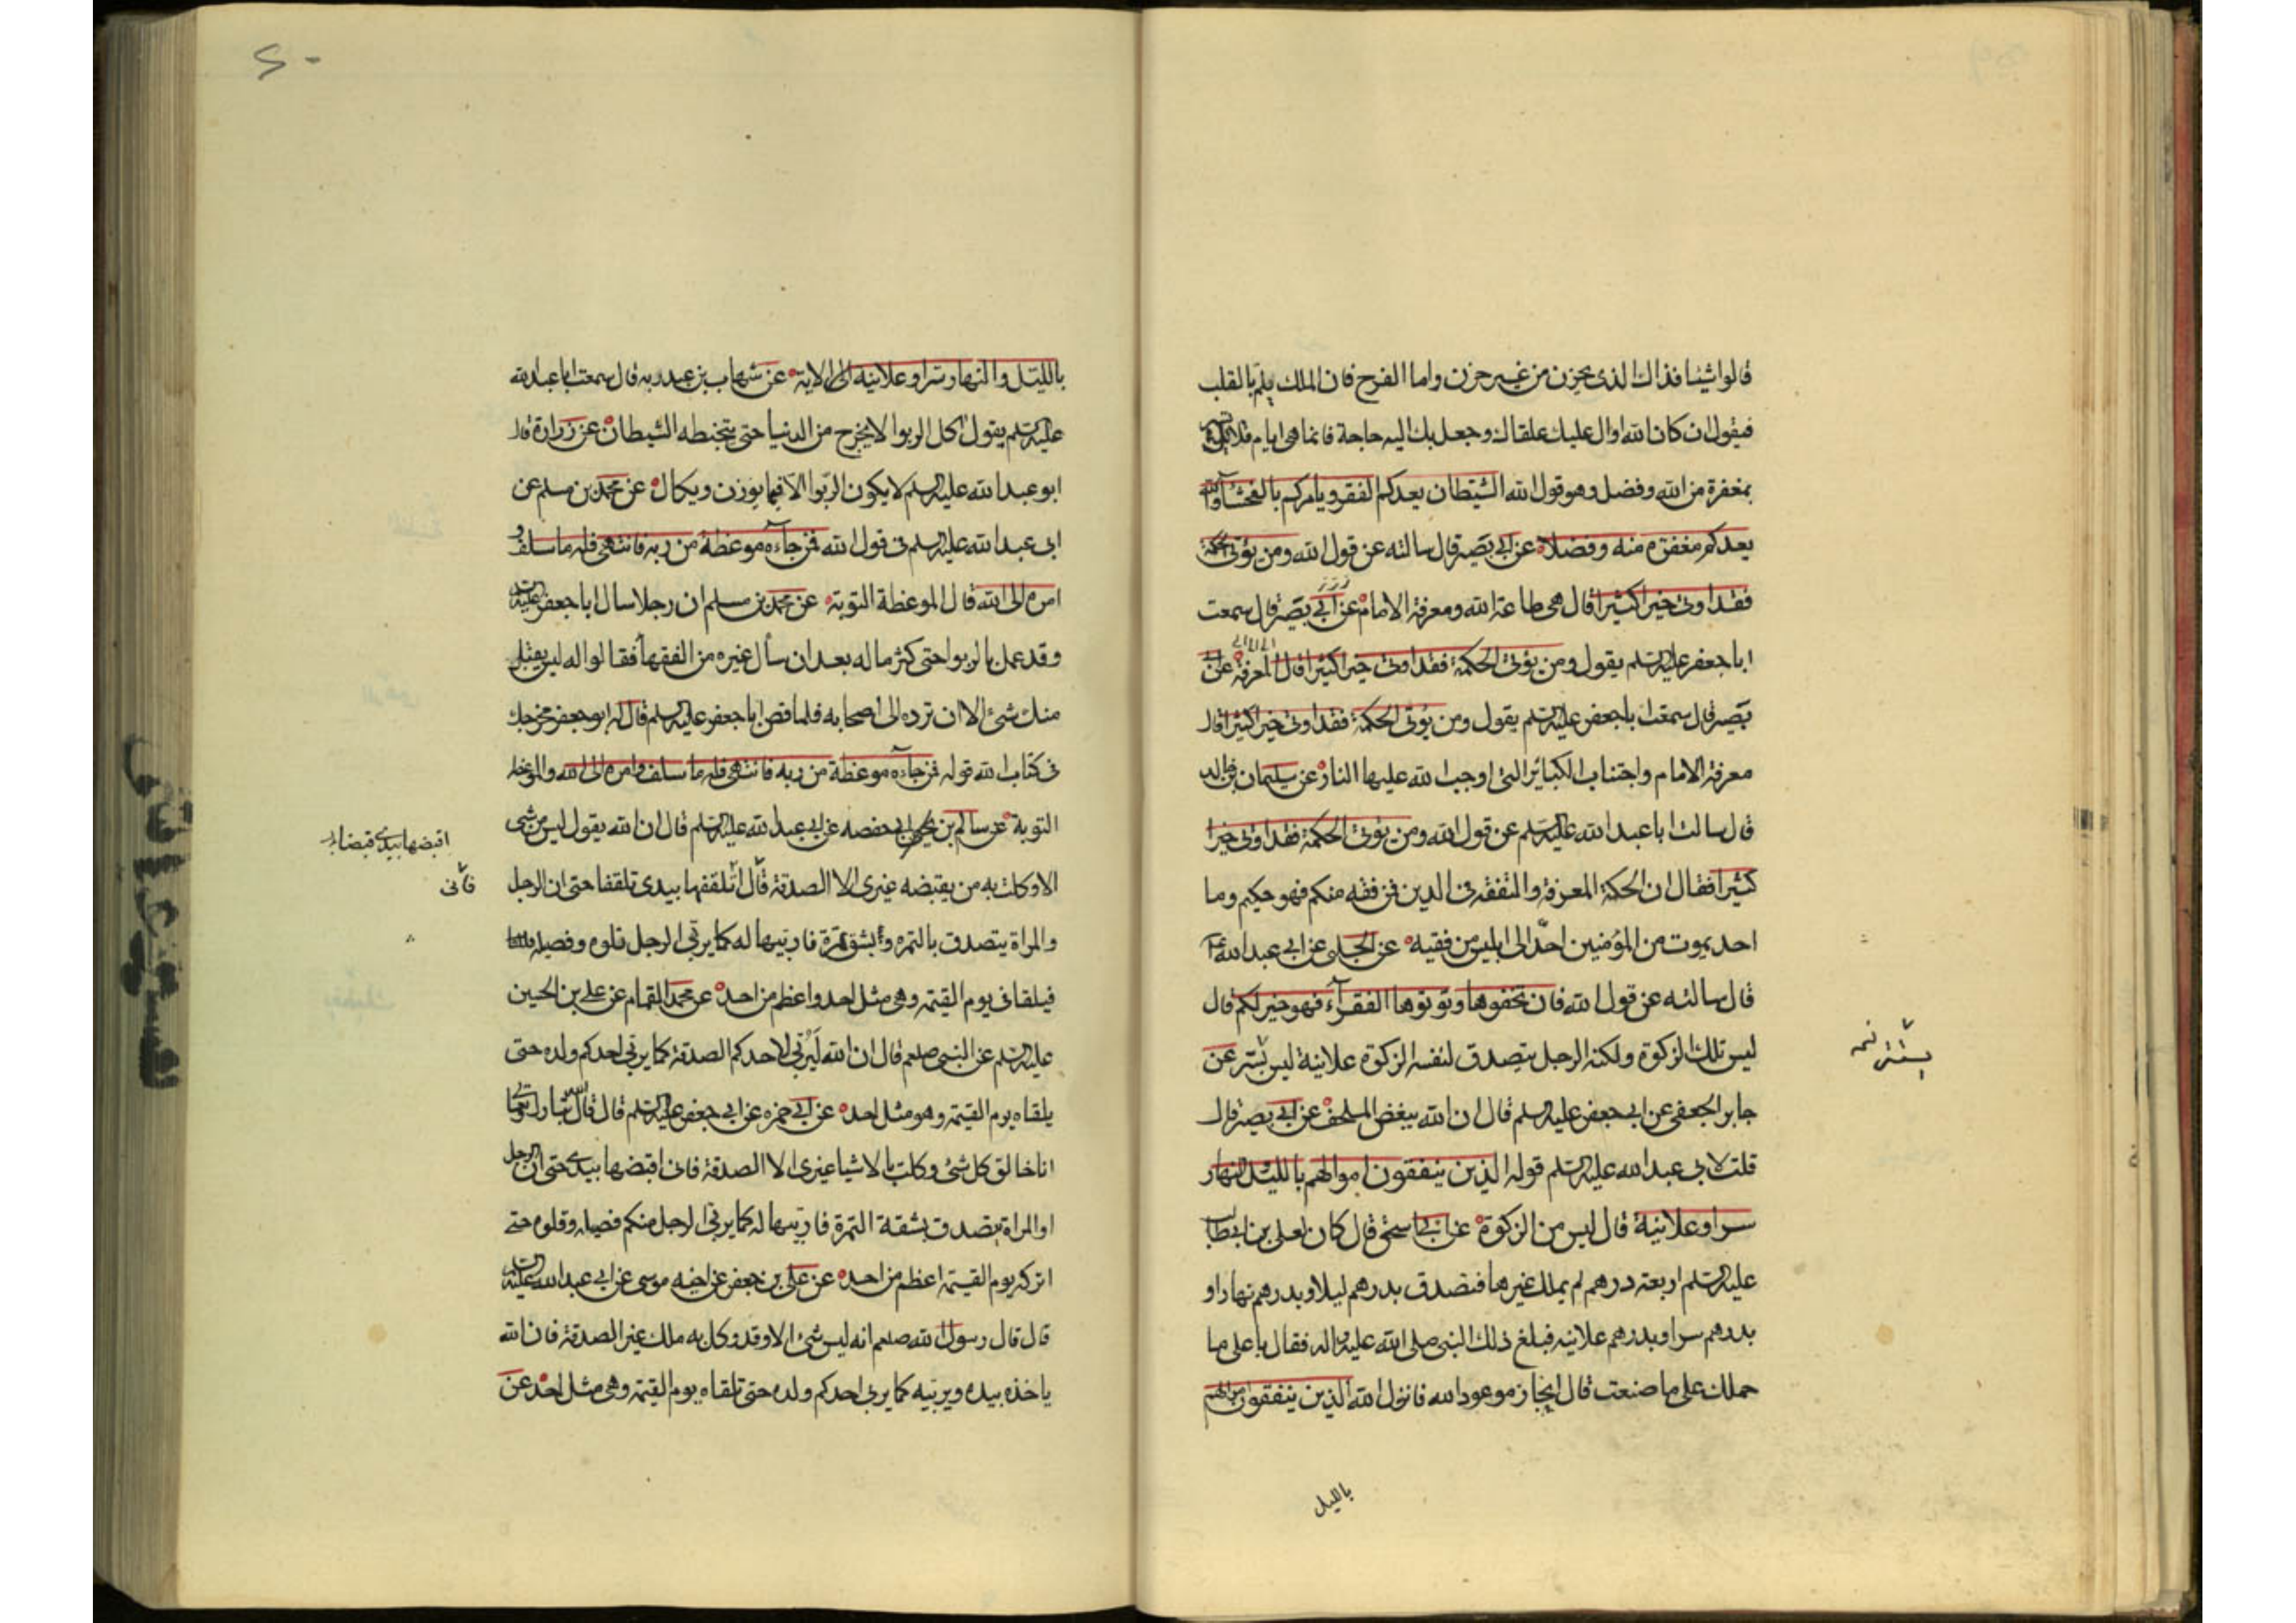 قالوا شيئا فذاك الذى يحزن من غير حزن واما الفرح فان الملك يلم بالقلب
فيقول ان كان الله اوال عليك علقاك وجعل بك اليه حاجة فانما هى ايام قلائل
بمغفرة من الله وفضل وهو قول الله الشيطان يعدكم الفقر ويامركم بالفحشآ والله
يعدكم مغفرة منه وفضلا عن ابى بصير قال سالته عن قول الله ومن يؤتى الحكمة
فقد اوتى خيرا كثيرا قال هى طاعة الله ومعرفة الامام عن ابى بصير قال سمعت
ابا جعفر عليه السلم يقول ومن يؤتى الحكمة فقد اوتى خيرا كثيرا قال المعرفة عن ابى
بصير قال سمعت ابا جعفر عليه السلم يقول ومن يؤتى الحكمة فقد اوتى خيرا كثيرا قال
معرفة الامام واجتناب الكبائر التى اوجب الله عليها النار عن سليمان بن خالد
قال سالت ابا عبد الله عليه السلم عن قول الله ومن يؤتى الحكمة فقد اوتى خيرا
كثيرا فقال ان الحكمة المعرفة والتفقه فى الدين فمن فقه منكم فهو حكيم وما
احد يموت من المؤمنين احب الى ابليس من فقيه عن الحلبى عن ابى عبد الله
قال سالته عن قول الله فان تخفوها وتوتوها الفقرآء فهو خير لكم قال
ليس تلك الزكوة ولكنه الرجل يتصدق لنفسه الزكوة علانية ليس بستر عن
بستر نمه
جابر الجعفى عن ابى جعفر عليه السلم قال ان الله يبغض الملحف عن ابى بصير قال
قلت لابى عبد الله عليه السلم قوله الذين ينفقون اموالهم بالليل والنهار
سرا وعلانية قال ليس من الزكوة عن ابى اسحق قال كان لعلى بن ابيطالب
عليه السلم اربعة درهم لم يملك غيرها فتصدق بدرهم ليلا وبدرهم نهارا و
بدرهم سرا وبدرهم علانيه فبلغ ذلك النبى صلى الله عليه واله فقال يا على ما
حملك على ما صنعت قال انجاز موعود الله فانزل الله الذين ينفقون اموالهم
بالليل
٤٠
بالليل والنهار سرا وعلانيه الى الاية عن شهاب بن عبد ربه قال سمعت ابا عبد الله
عليه السلم يقول اكل الربوا لا يخرج من الدنيا حتى يتخبطه الشيطان عن زرارة قال
ابو عبد الله عليه السلم لا يكون الربوا الا فيما يوزن ويكال عن محمد بن مسلم عن
ابى عبد الله عليه السلم فى قول الله فمن جآءه موعظة من ربه فانتهى فله ما سلف و
امره الى الله قال الموعظة التوبة عن محمد بن مسلم ان رجلا سال ابا جعفر عليه السلم
وقد عمل بالربوا حتى كثر ماله بعد ان سأل غيره من الفقهآ فقالوا له ليس يقبل
منك شئ الا ان ترده الى اصحابه فلما قص ابا جعفر عليه السلم قال له ابو جعفر مخرجك
فى كتاب الله قوله فمن جآءه موعظة من ربه فانتهى فله ما سلف وامره الى الله والموعظة
التوبة عن سالم بن ابى حفصه عن ابى عبد الله عليه السلم قال ان الله يقول ليس من شئ
اقبضها بيدى قبضا
الا وكلت به من يقبضه غيرى الا الصدقة قال اتلقفها بيدى تلقفا حتى ان الرجل
فانى
والمراة يتصدق بالتمره او بشق تمرة فاربيها له كما يربى الرجل فلوه وفصيله
فيلقانى يوم القيمة وهى مثل احد واعظم من احد عن محمد القمام عن على بن الحسين
عليه السلم عن النبى صلعم قال ان الله ليربى لاحدكم الصدقة كما يربى احدكم ولده حتى
يلقاه يوم القيمة وهو مثل احد عن ابى حمزه عن ابى جعفر عليه السلم قال قال الله تبارك وتعالى
انا خالق كل شئ وكلت بالاشيا غيرى الا الصدقة فانى اقبضها بيدى حتى ان الرجل
او المراة يتصدق بشقة التمرة فاربيها له كما يربى الرجل منكم فصيله وفلوه حتى
اتركه يوم القيمة اعظم من احد عن على بن جعفر عن اخيه موسى عن ابى عبد الله عليه السلم
قال قال رسول الله صلعم انه ليس شئ الا وقد وكل به ملك غير الصدقة فان الله
ياخذه بيده ويربيه كما يربى احدكم ولده حتى تلقاه يوم القيمة وهى مثل احد عن